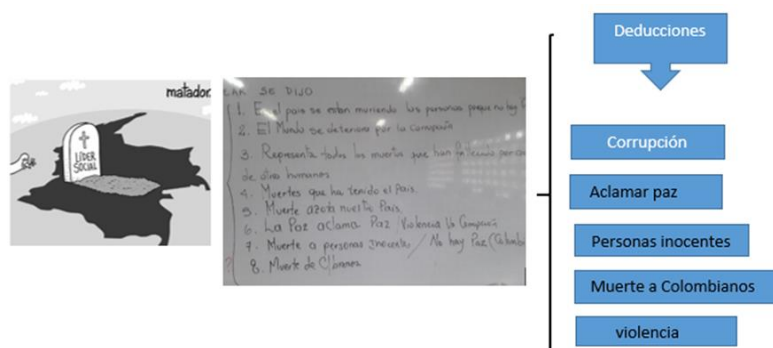 matador
LÍDER
SOCIAL
SE DIJO
1. En el pais se estan muriendo las personas porque no hay
2. El Mundo se deteriora por la Corrupción
3. Representa todos los muertos que han
de seres humanos
4. Muertes que ha tenido el País.
5. Muerte azota nuestro País.
6. La Paz aclama Paz / Violencia
7. Muerte a personas Inocentes / No hay Paz (Colombia
8. Muerte de C/bianos
Deducciones
Corrupción
Aclamar paz
Personas inocentes
Muerte a Colombianos
violencia